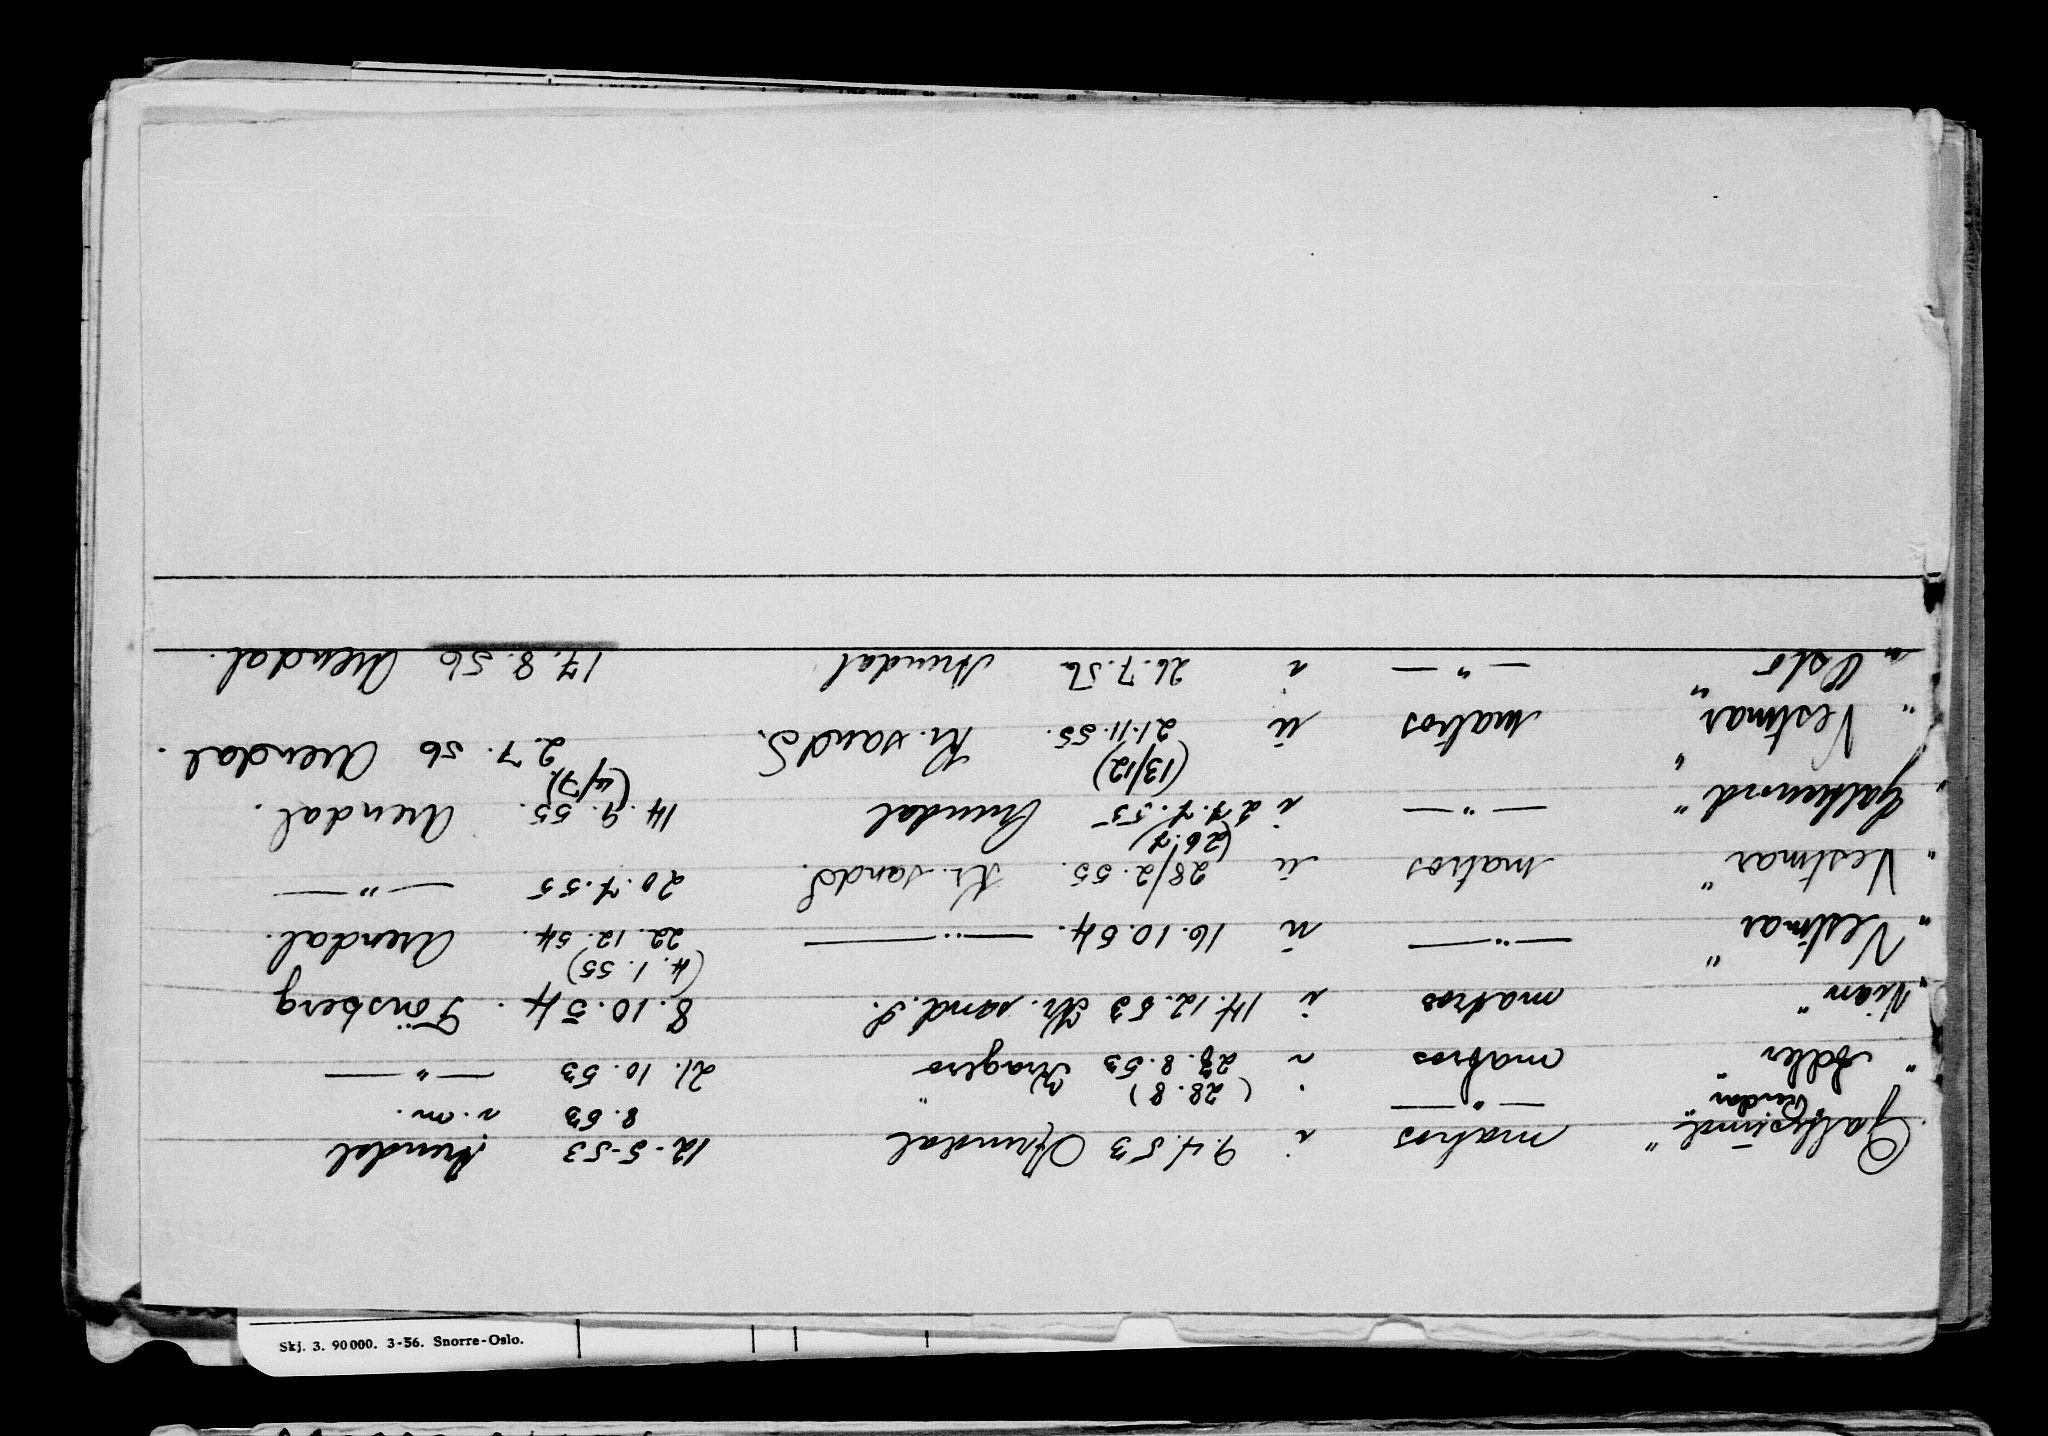 "Galtesund" matros i 9.4.53 Arendal 12-5-53 Arendal
—"— " 8.53 n. m.
"Adler" matros i (28.8) 28.8.53 Kragerø 21.10.53 —"—
"Vian" matros i 14.12.53 Kr.sand S. 8.10.54. Tönsberg
(4.1.55)
"Vestmar" —"— u 16.10.54. —"— 22.12.54. Arendal.
"Vestmar" matros u 28/2.55. Kr.sand S. 20.7.55 —"—
(26.7)
"Galtenord" —"— i 27.7.55 Arendal 14.9.55. Arendal.
(13/12) (4/7)
"Vestmar" matros u 21.11.55. Kr.sand S. 2.7.56 Arendal.
"Oslo" —"— i 26.7.56 Arendal 17.8.56 Arendal.
Skj. 3. 90000. 3-56. Snorre-Oslo.